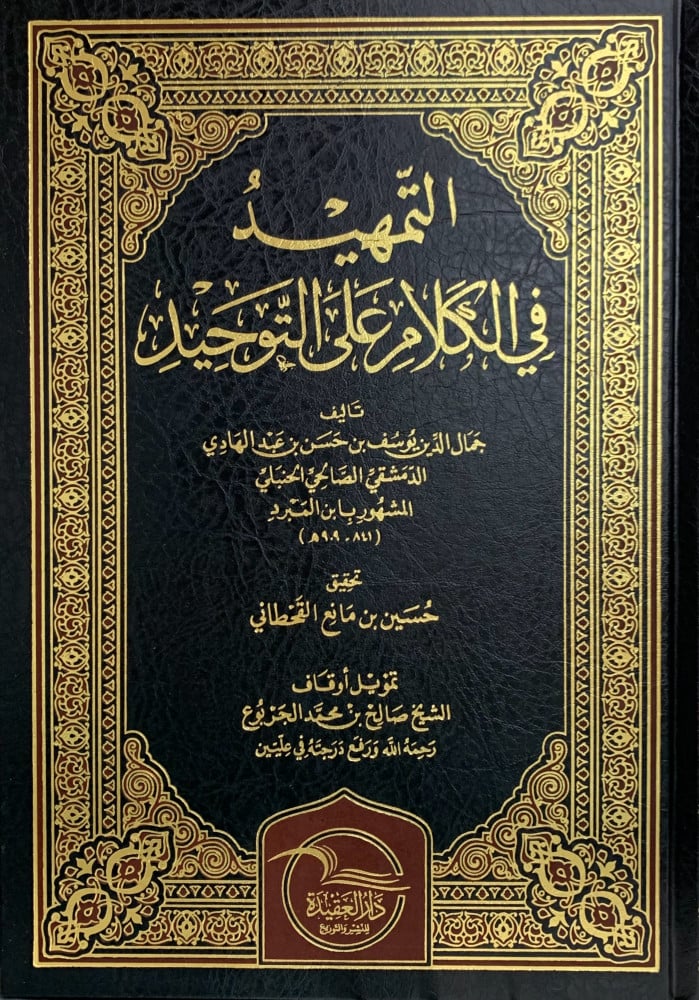 التَّمْهِيدُ
فِي الكَلَامِ عَلَى التَّوْحِيدِ
تَأليف
جَمَال الدِّين يُوسُف بن حَسَن بن عَبْد الهَادِي
الدِّمَشْقِيِّ الصَّالِحِيِّ الحَنْبَلِيِّ
المشهُور بِابن المَبْرِد
(٨٤١ - ٩٠٩ هـ)
تحقيق
حُسَين بن مَانِع القَحْطَانِي
تمويل أوقَاف
الشيخ صَالِح بْن محمَّد الجَرْبُوع
رَحِمَهُ اللَّه وَرَفَع دَرَجَتَهُ فِي عِلِّيّين
دَارُ العَقِيدَة
لِلنَّشِرْ وَالتَّوزيع